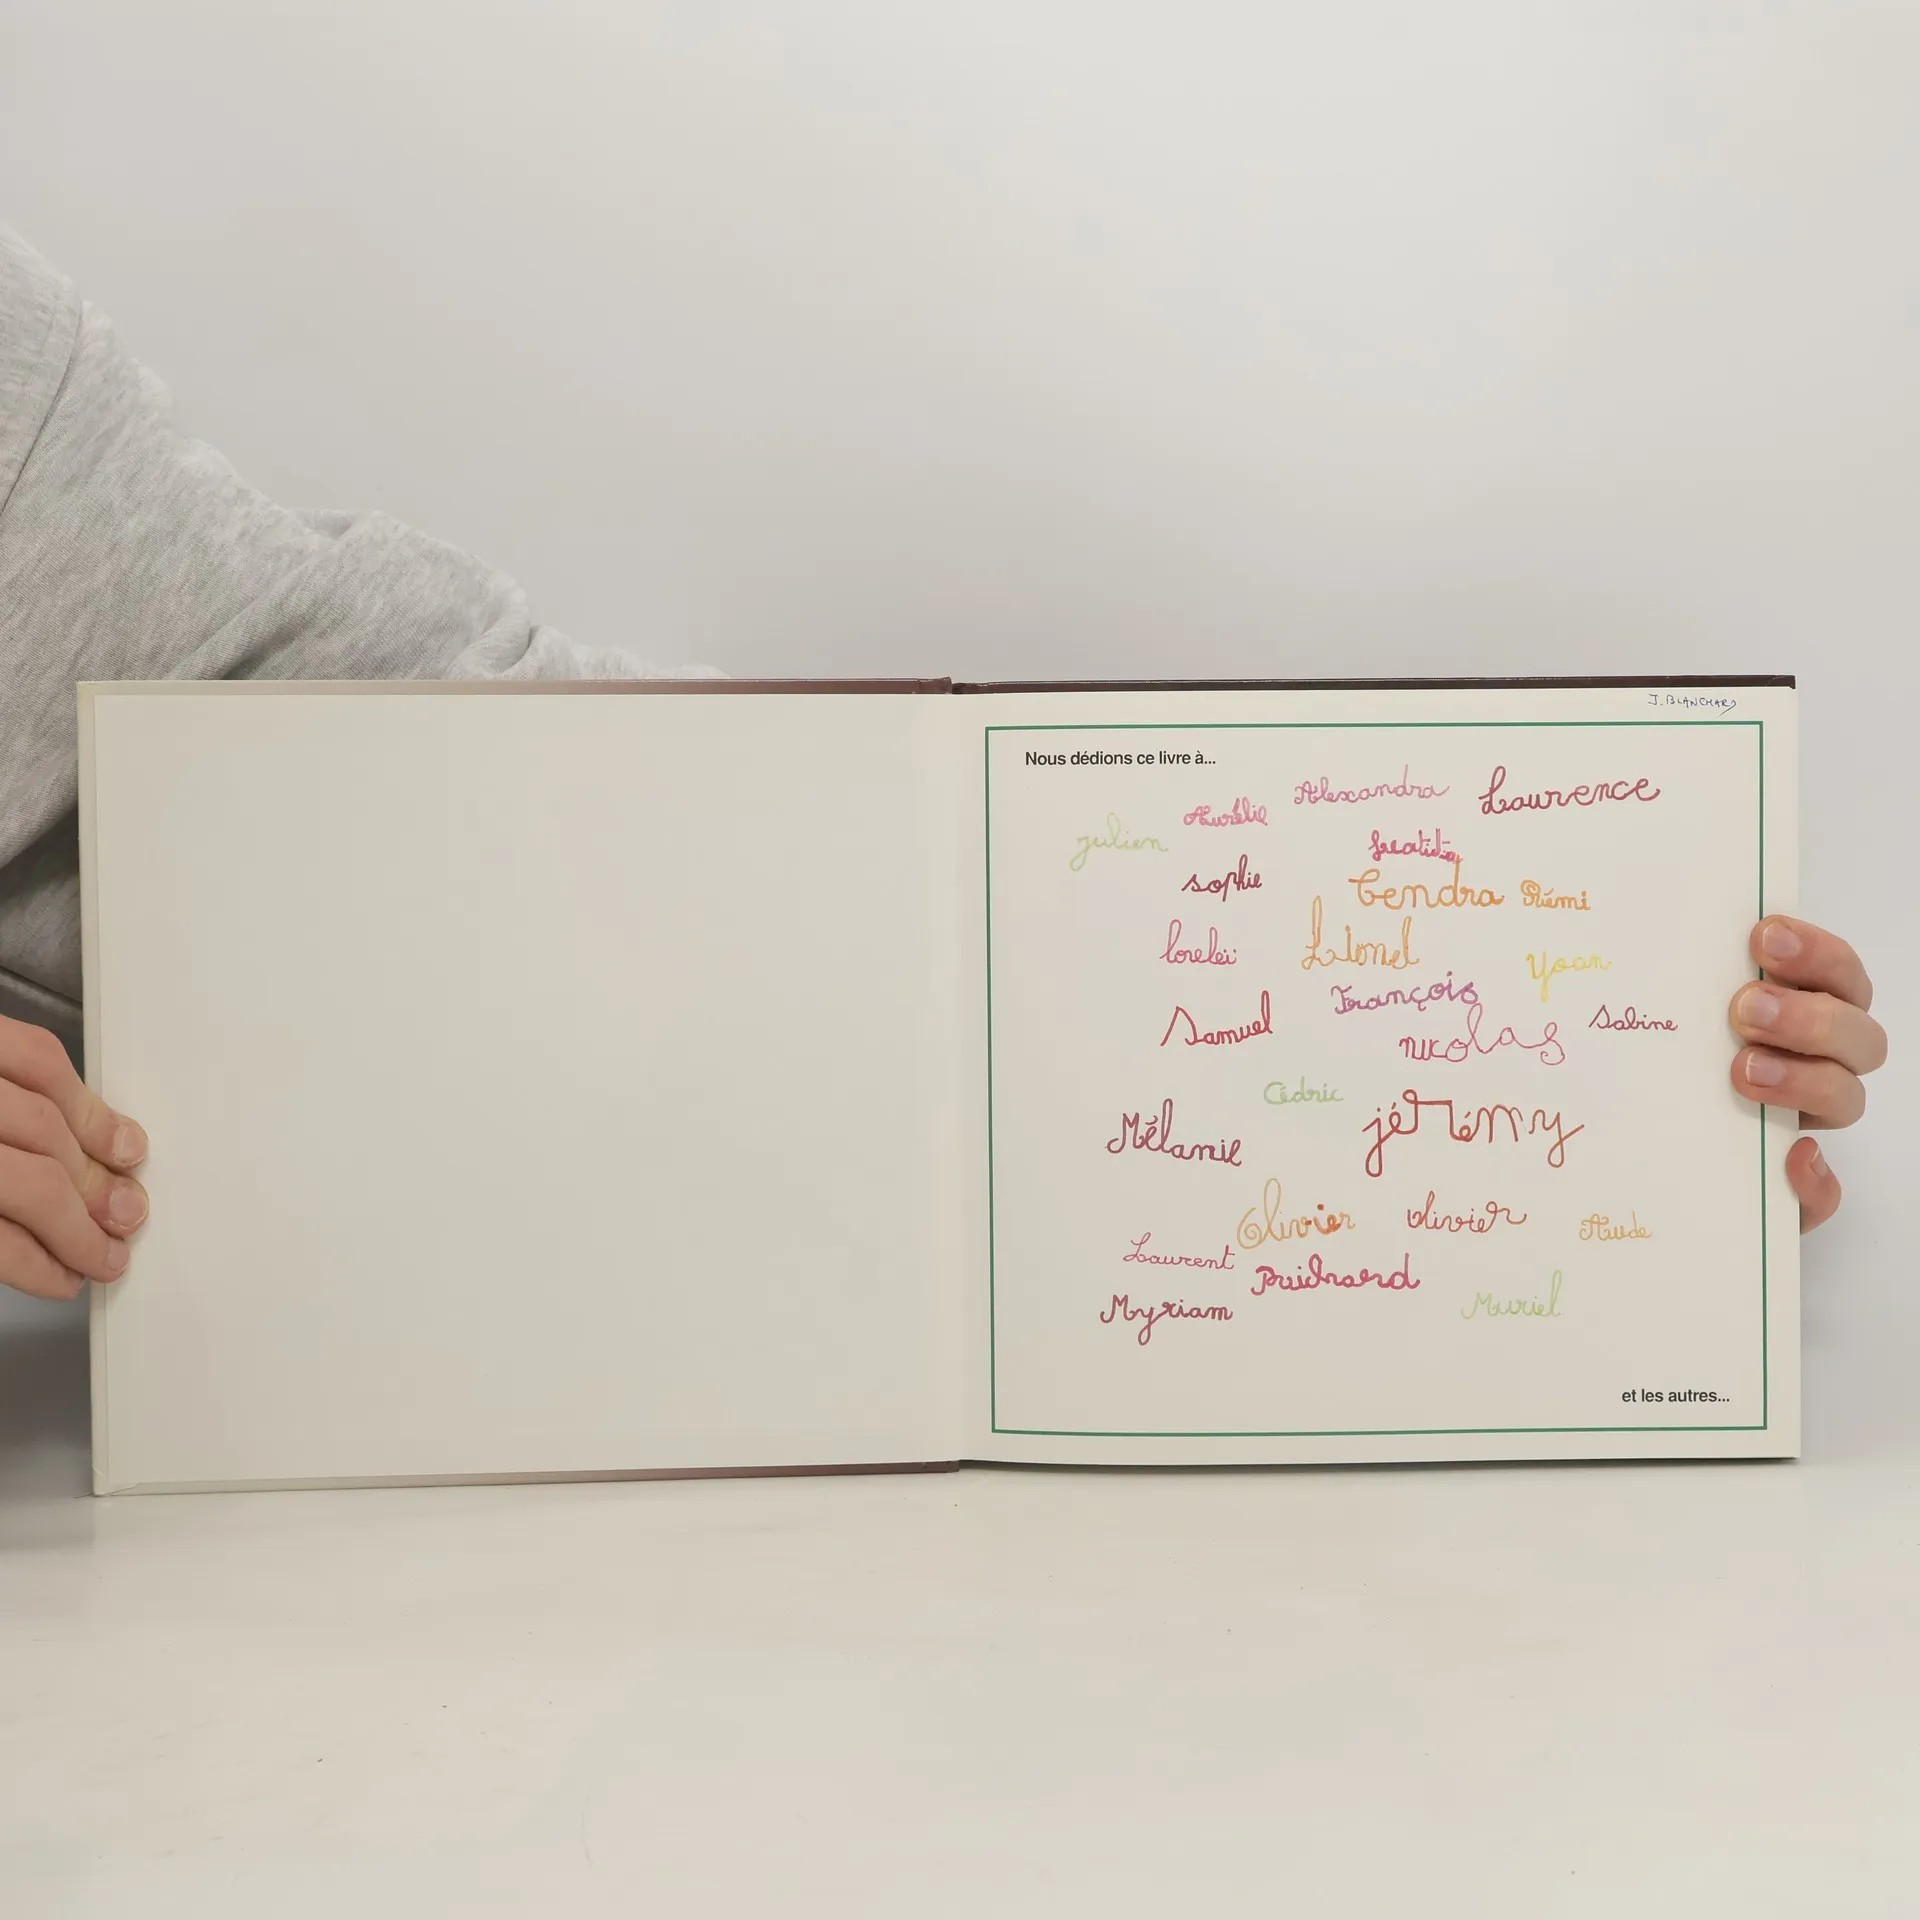 J. BLANCHARD
Nous dédions ce livre à...
Alexandra
Laurence
Aurélie
julien
sophie
Cendra
Rémi
lorelei
Lionel
Yoan
François
Samuel
nicolas
Sabine
Cédric
Mélanie
jérémy
Olivier
olivier
Aude
Laurent
Myriam
Muriel
et les autres...